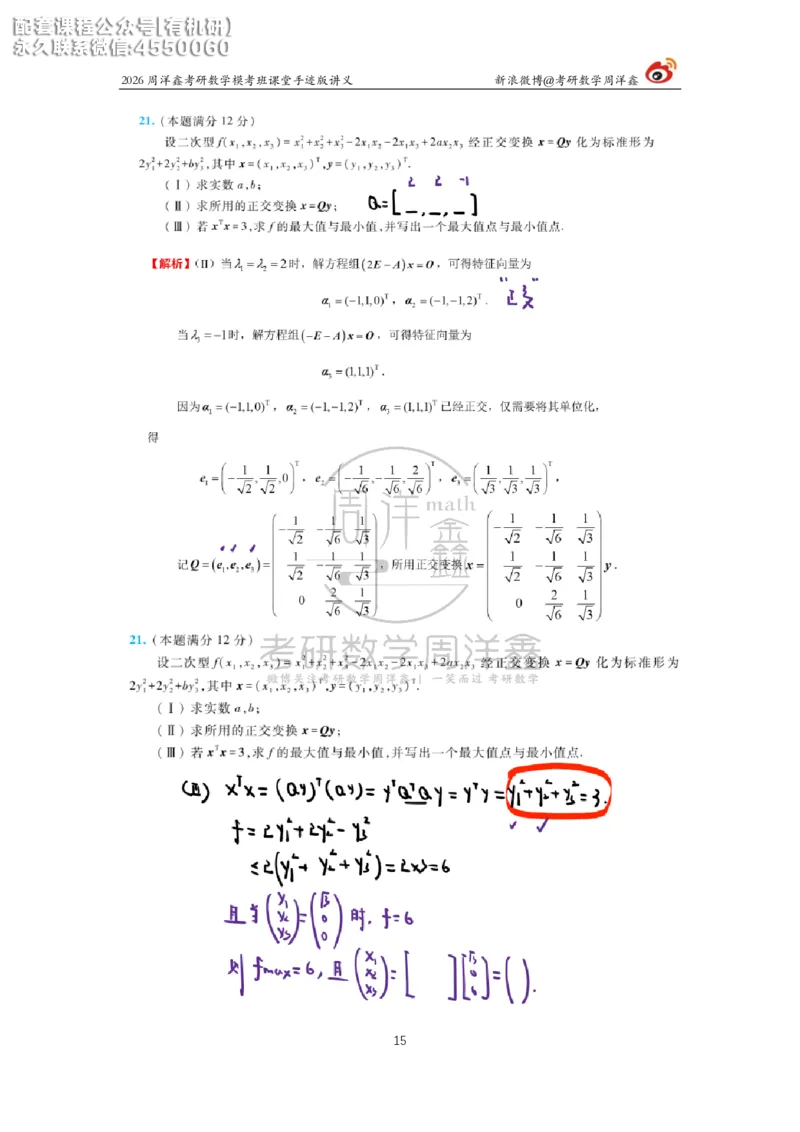 配套课程公众号[有机研]
永久联系微信:4550060
2026 周洋鑫考研数学模考班课堂手迹版讲义 新浪微博@考研数学周洋鑫
21.(本题满分 12 分)
设二次型 f(x₁,x₂,x₃)= x₁²+x₂²+x₃²-2x₁x₂-2x₁x₃+2ax₂x₃ 经正交变换 x=Qy 化为标准形为
2y₁²+2y₂²+by₃²,其中 x=(x₁,x₂,x₃)ᵀ,y=(y₁,y₂,y₃)ᵀ.
(Ⅰ)求实数 a,b;
2 2 -1
(Ⅱ)求所用的正交变换 x=Qy; Q=[ _, _, _ ]
(Ⅲ)若 xᵀx=3,求 f 的最大值与最小值,并写出一个最大值点与最小值点.
【解析】(II)当λ₁=λ₂=2时,解方程组(2E-A)x=O,可得特征向量为
α₁=(-1,1,0)ᵀ,α₂=(-1,-1,2)ᵀ. "正交"
当λ₃=-1时,解方程组(-E-A)x=O,可得特征向量为
α₃=(1,1,1)ᵀ.
因为α₁=(-1,1,0)ᵀ,α₂=(-1,-1,2)ᵀ,α₃=(1,1,1)ᵀ已经正交,仅需要将其单位化,
得
e₁=(-1/√2, 1/√2, 0)ᵀ,e₂=(-1/√6, -1/√6, 2/√6)ᵀ,e₃=(1/√3, 1/√3, 1/√3)ᵀ,
记Q=(e₁,e₂,e₃)=(-1/√2 -1/√6 1/√3; 1/√2 -1/√6 1/√3; 0 2/√6 1/√3),所用正交变换x=(-1/√2 -1/√6 1/√3; 1/√2 -1/√6 1/√3; 0 2/√6 1/√3)y.
周洋鑫
math
考研数学周洋鑫
微博关注考研数学周洋鑫 | 一笑而过 考研数学
21.(本题满分 12 分)
设二次型 f(x₁,x₂,x₃)= x₁²+x₂²+x₃²-2x₁x₂-2x₁x₃+2ax₂x₃ 经正交变换 x=Qy 化为标准形为
2y₁²+2y₂²+by₃²,其中 x=(x₁,x₂,x₃)ᵀ,y=(y₁,y₂,y₃)ᵀ.
(Ⅰ)求实数 a,b;
(Ⅱ)求所用的正交变换 x=Qy;
(Ⅲ)若 xᵀx=3,求 f 的最大值与最小值,并写出一个最大值点与最小值点.
(Ⅲ) xᵀx=(Qy)ᵀ(Qy)=yᵀQᵀQy=yᵀy=y₁²+y₂²+y₃²=3.
f=2y₁²+2y₂²-y₃²
≤2(y₁²+y₂²+y₃²)=2×3=6
且当(y₁ y₂ y₃)=(√3 0 0)时,f=6
则 fmax=6,且(x₁ x₂ x₃)=[ ][√3 0 0]=( ).
15